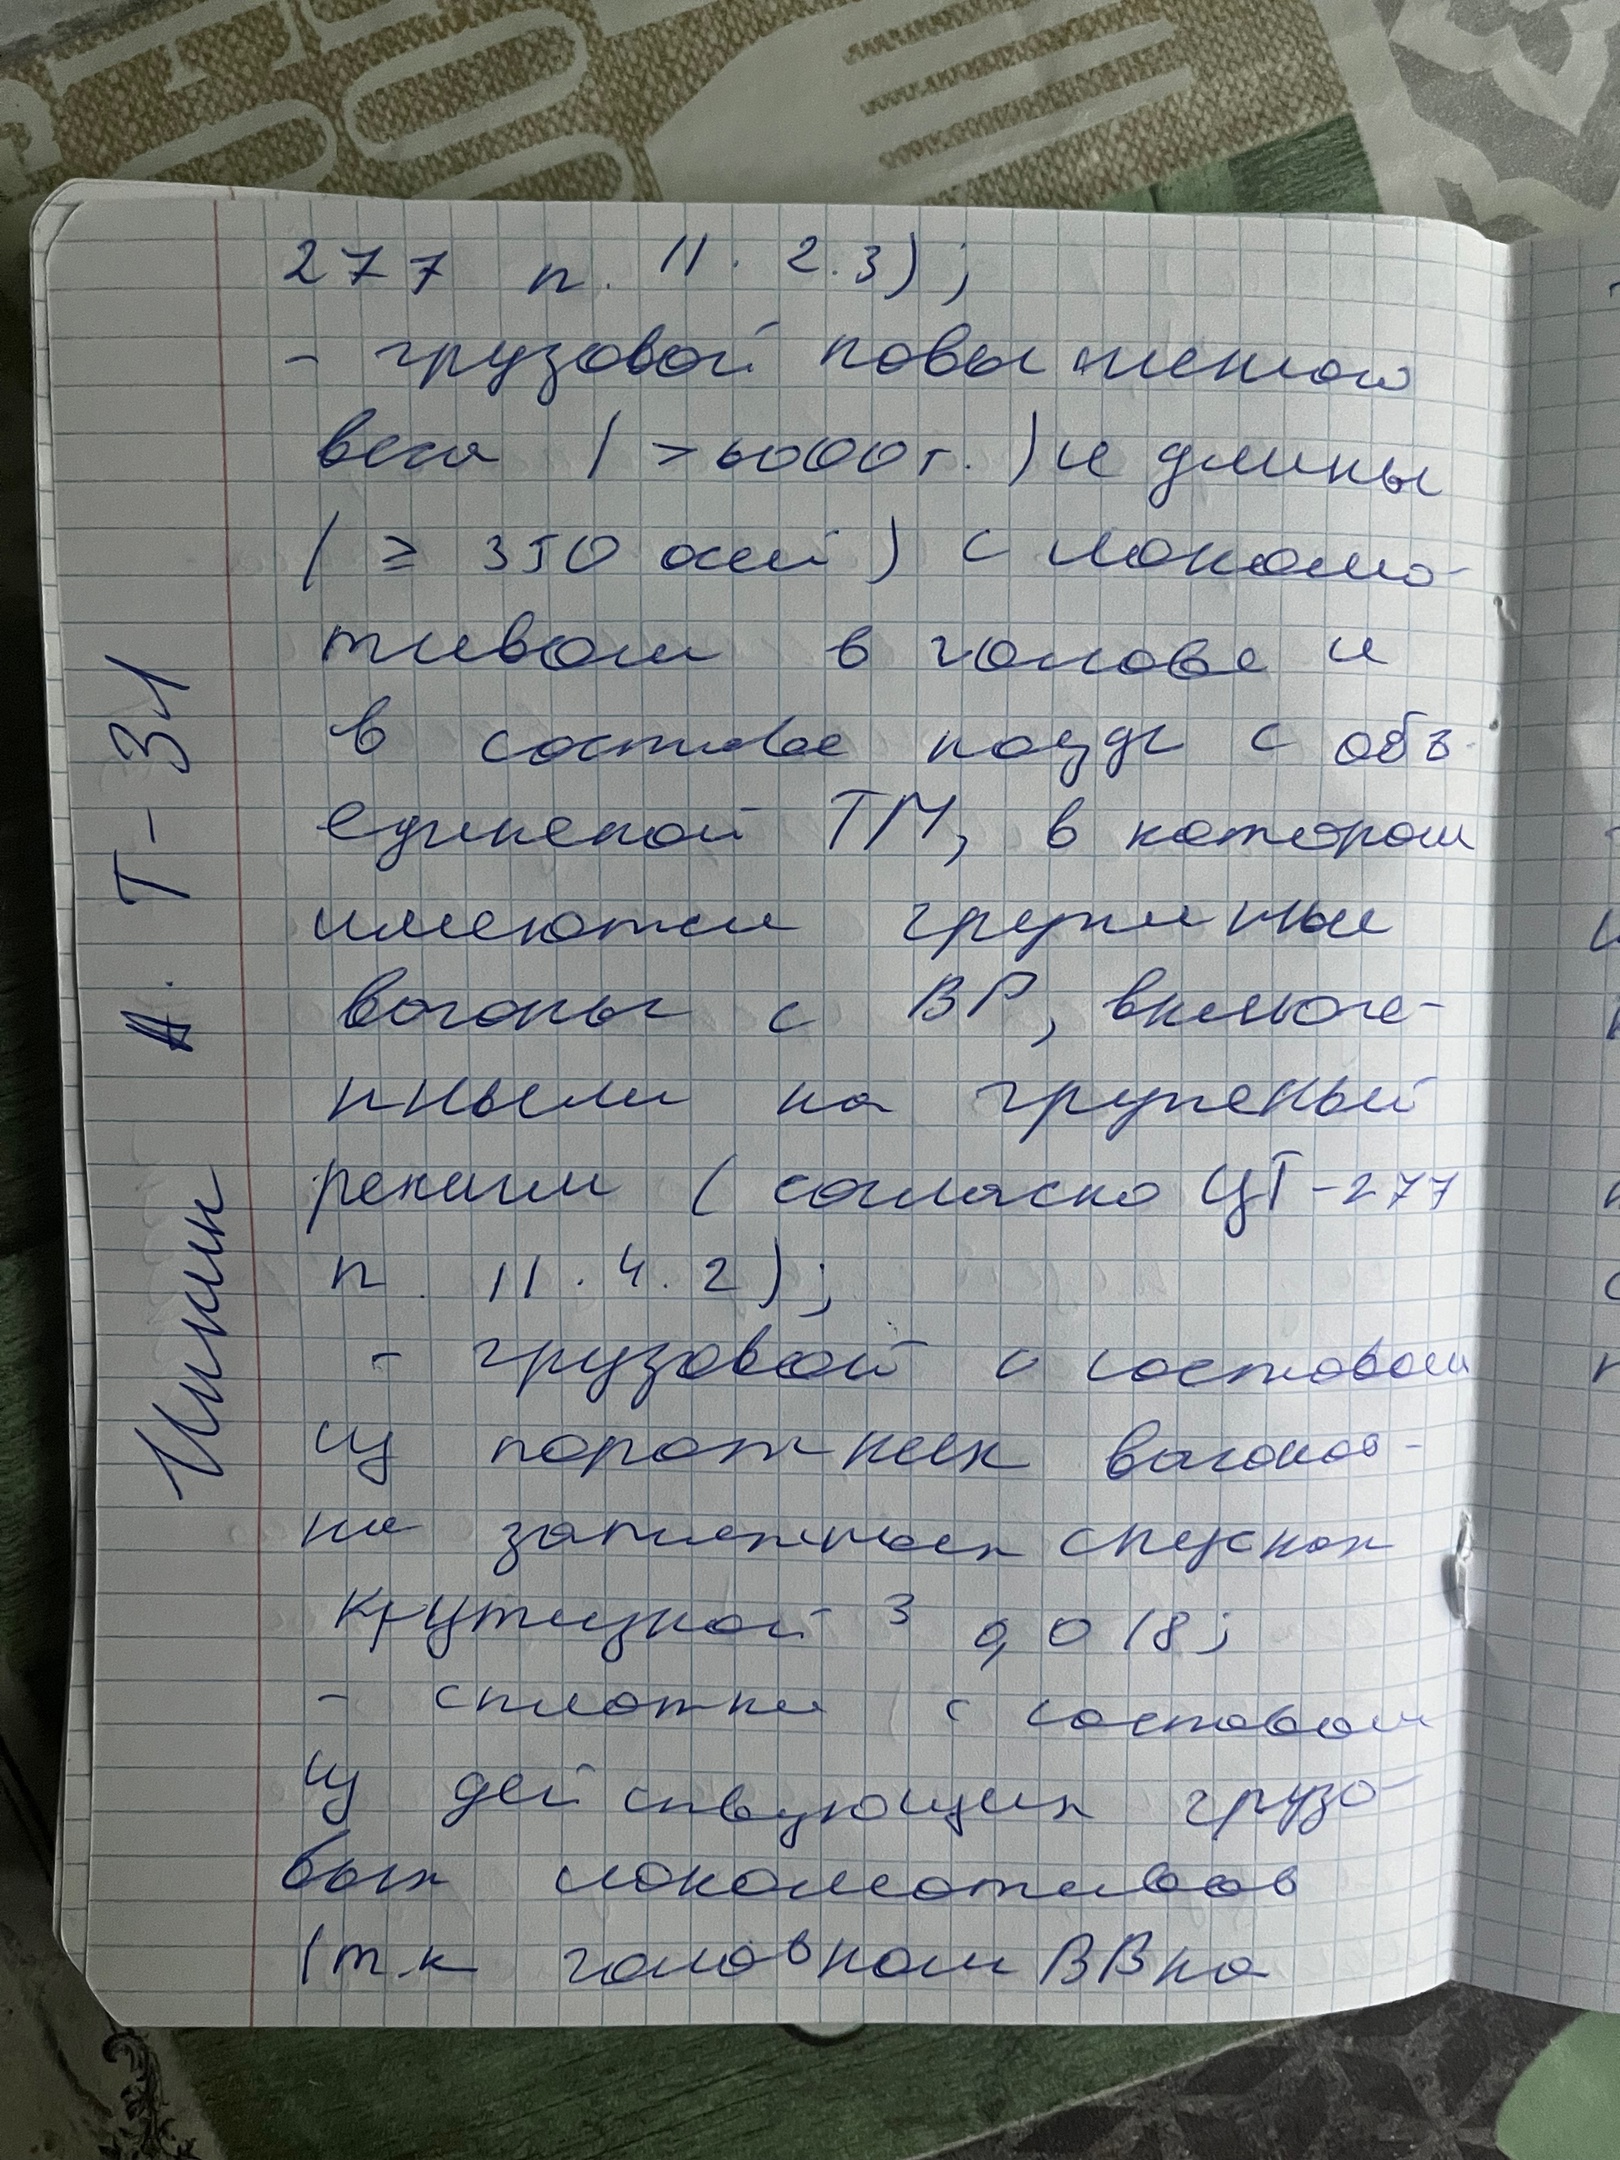 277 п. 11. 2.3);
- грузовой повышенного
веса (>6000т.) и длины
(≥ 350 осей) с локомо-
тивом в голове и
в составе поезда с объ-
единеной ТМ, в котором
имеются груженые
вагоны с ВР, включе-
нными на груженый
режим (согласно ЦТ-277
п. 11.4.2);
- грузовой с составом
из порожних вагонов -
на затяжных спусках
крутизной ³ 0,018;
- сплотки с составом
из действующих грузо-
вых локомотивов
(т.к головном ВВ на
Т-31